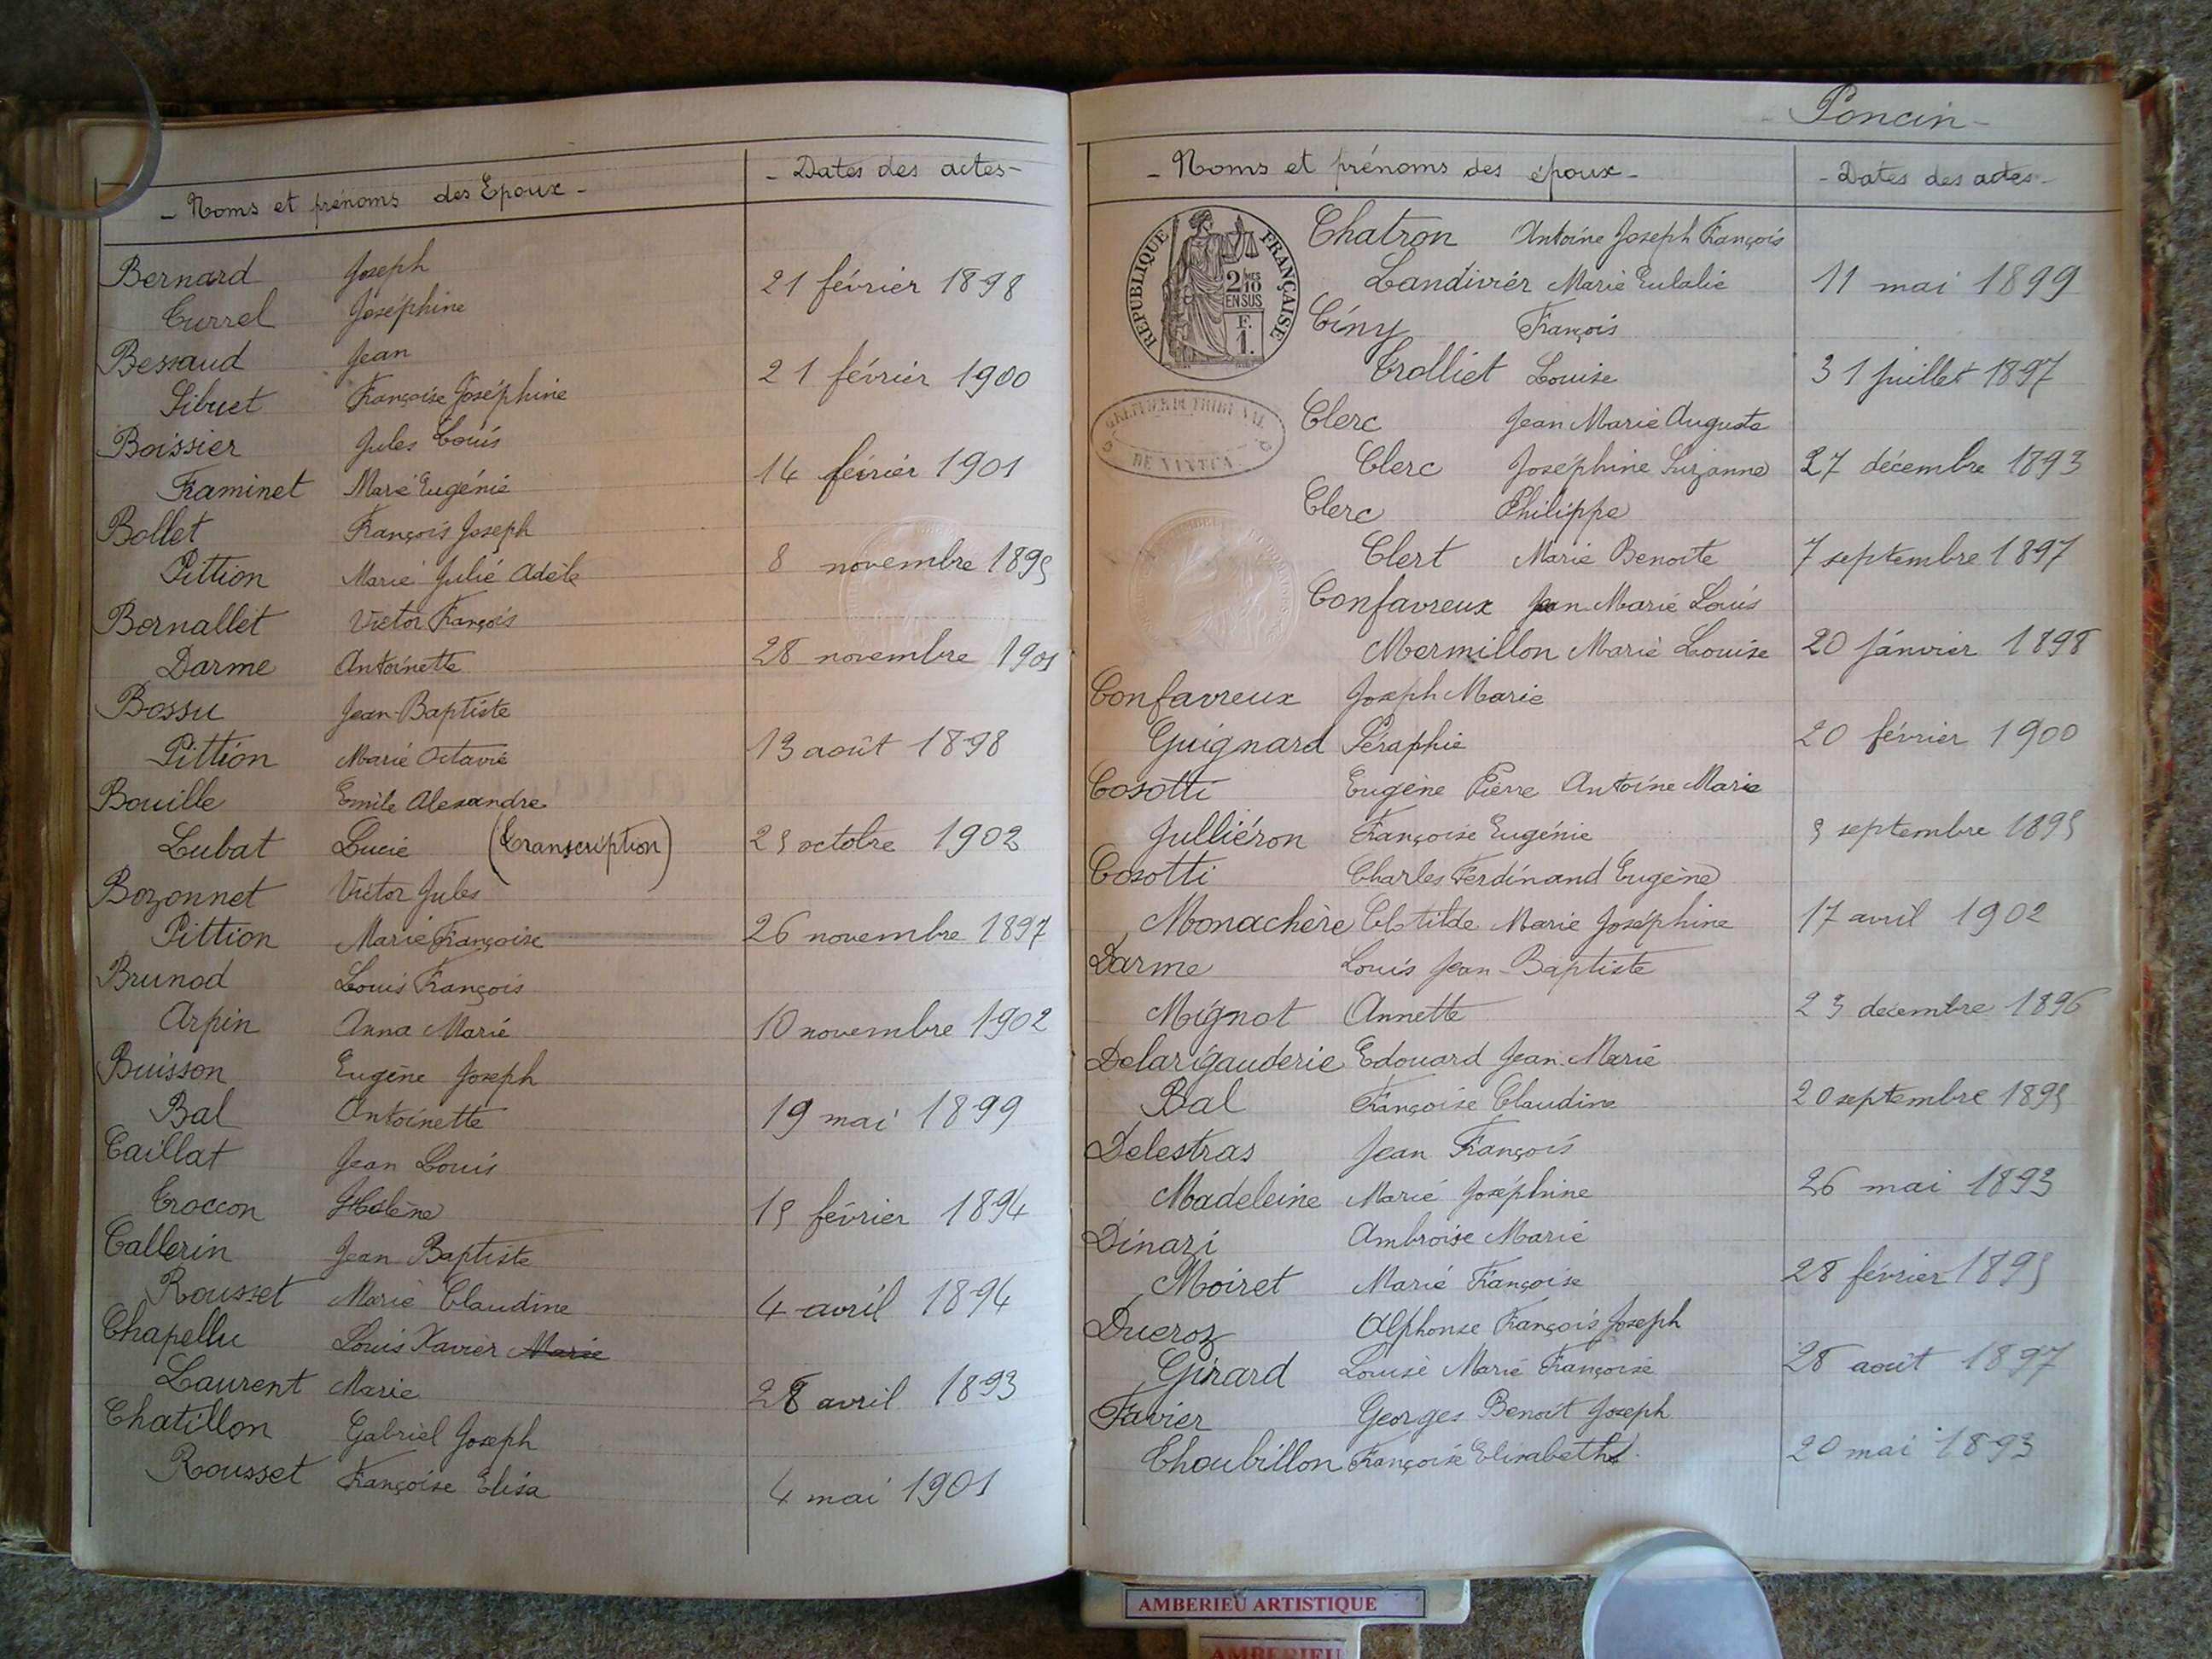 - Noms et prénoms des Epoux -
- Dates des actes -
Bernard Joseph
Currel Joséphine 21 février 1898
Bessaud Jean
Sibuet Françoise Joséphine 21 février 1900
Boissier Jules Louis
Framinet Marie Eugénie 14 février 1901
Bollet François Joseph
Pittion Marie Julie Adèle 8 novembre 1895
Bornallet Victor François
Darme Antoinette 28 novembre 1901
Bossu Jean-Baptiste
Pittion Marie Octavie 13 août 1898
Bouille Emile Alexandre
Lubat Lucie (Transcription) 25 octobre 1902
Bozonnet Victor Jules
Pittion Marie Françoise 26 novembre 1897
Brunod Louis François
Arpin Anna Marie 10 novembre 1902
Buisson Eugène Joseph
Bal Antoinette 19 mai 1899
Caillat Jean Louis
Croccon Hélène 15 février 1894
Callerin Jean Baptiste
Rousset Marie Claudine 4 avril 1894
Chapellu Louis Xavier Marie
Laurent Marie 28 avril 1893
Chatillon Gabriel Joseph
Rousset Françoise Elisa 4 mai 1901
- Poncin -
- Noms et prénoms des époux -
- Dates des actes -
REPUBLIQUE FRANÇAISE
2/10 MES
EN SUS
F.
1.
GREFFIER DU TRIBUNAL
DE NANTUA
Chatron Antoine Joseph François
Landivier Marie Eulalie 11 mai 1899
Cíny François
Trolliet Louise 31 juillet 1897
Clerc Jean Marie Auguste
Clerc Joséphine Suzanne 27 décembre 1893
Clerc Philippe
Clert Marie Benoite 7 septembre 1897
Confavreux Jean Marie Louis
Mermillon Marie Louise 20 janvier 1898
Confavreux Joseph Marie
Guignard Séraphie 20 février 1900
Cosotti Eugène Pierre Antoine Marie
Julliéron Françoise Eugénie 5 septembre 1895
Cosotti Charles Ferdinand Eugène
Monachère Clotilde Marie Joséphine 17 avril 1902
Darme Louis Jean-Baptiste
Mignot Annette 23 décembre 1896
Delarigauderie Edouard Jean-Marie
Bal Françoise Claudine 20 septembre 1895
Delestras Jean François
Madeleine Marie Joséphine 26 mai 1893
Dinazi Ambroise Marie
Moiret Marie Françoise 28 février 1895
Ducroz Alphonse François Joseph
Girard Louise Marie Françoise 28 août 1897
Favier Georges Benoit Joseph
Choubillon Françoise Elisabeth 20 mai 1893
AMBERIEU ARTISTIQUE
AMBERIEU